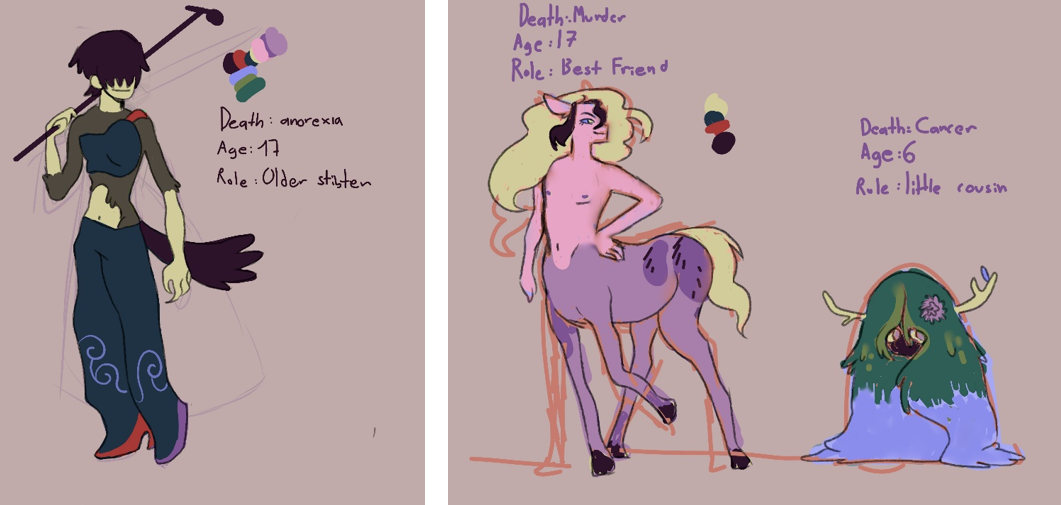 Death: anorexia
Age: 17
Role: Older stibten
Death: Murder
Age: 17
Role: Best Friend
Death: Cancer
Age: 6
Role: little cousin